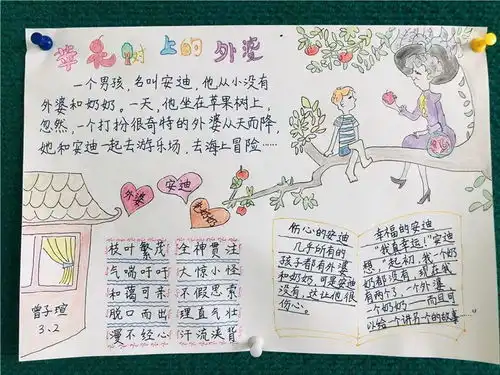 苹果树上的外婆
一个男孩,名叫安迪,他从小没有
外婆和奶奶。一天,他坐在苹果树上,
忽然,一个打扮很奇特的外婆从天而降,
她和安迪一起去游乐场、去海上冒险……
外婆
安迪
枝叶繁茂
气喘吁吁
和蔼可亲
脱口而出
漫不经心
全神贯注
大惊小怪
不假思索
理直气壮
汗流浃背
曾子瑄
3.2
伤心的安迪
几乎所有的
孩子都有外婆
和奶奶,可是安迪
没有,这让他很
伤心。
幸福的安迪
“我真幸运!”安迪
想,“起初,我一个奶
奶都没有,现在我
有两个了,一个外婆
一个奶奶——而且可
以给一个讲另一个的故事……”